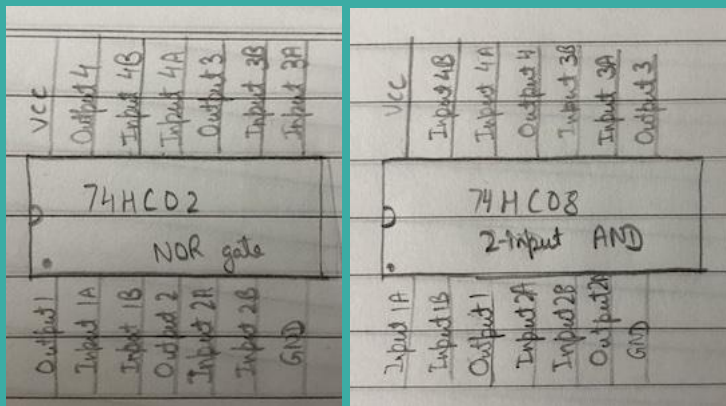 VCC
Output 4
Input 4B
Input 4A
Output 3
Input 3B
Input 3A
74HC02
NOR gate
Output 1
Input 1A
Input 1B
Output 2
Input 2A
Input 2B
GND
VCC
Input 4B
Input 4A
Output 4
Input 3B
Input 3A
Output 3
74HC08
2-input AND
Input 1A
Input 1B
Output 1
Input 2A
Input 2B
Output 2A
GND